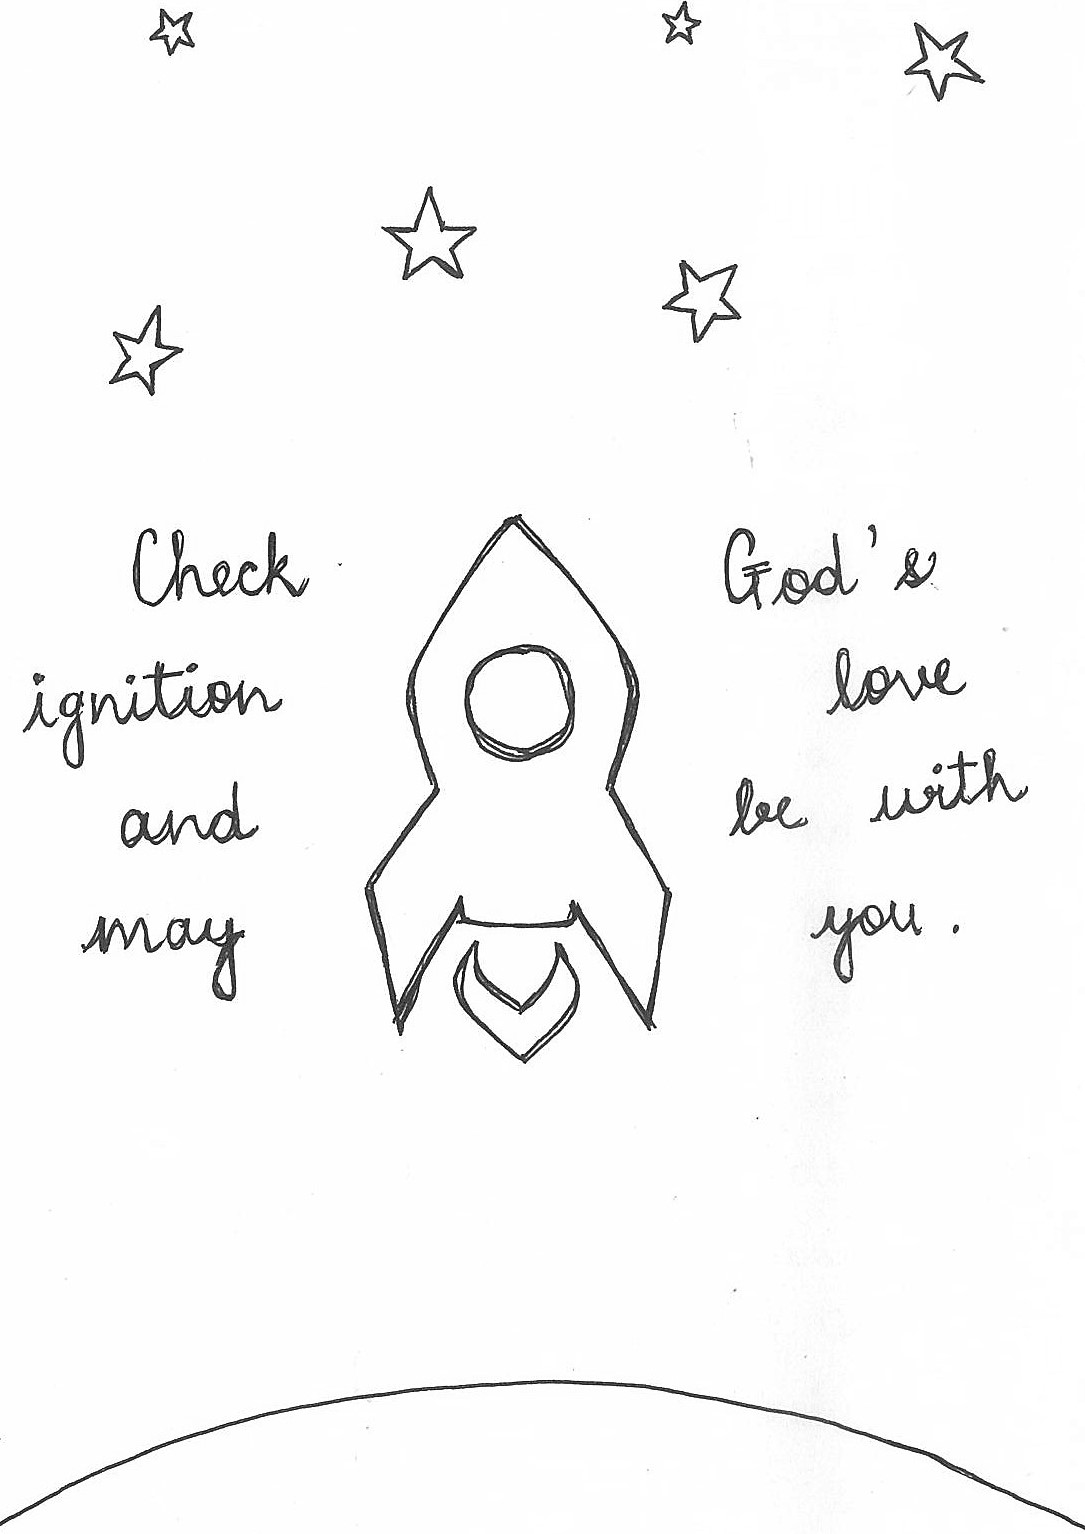 Check
ignition
and
may
God's
love
be with
you.